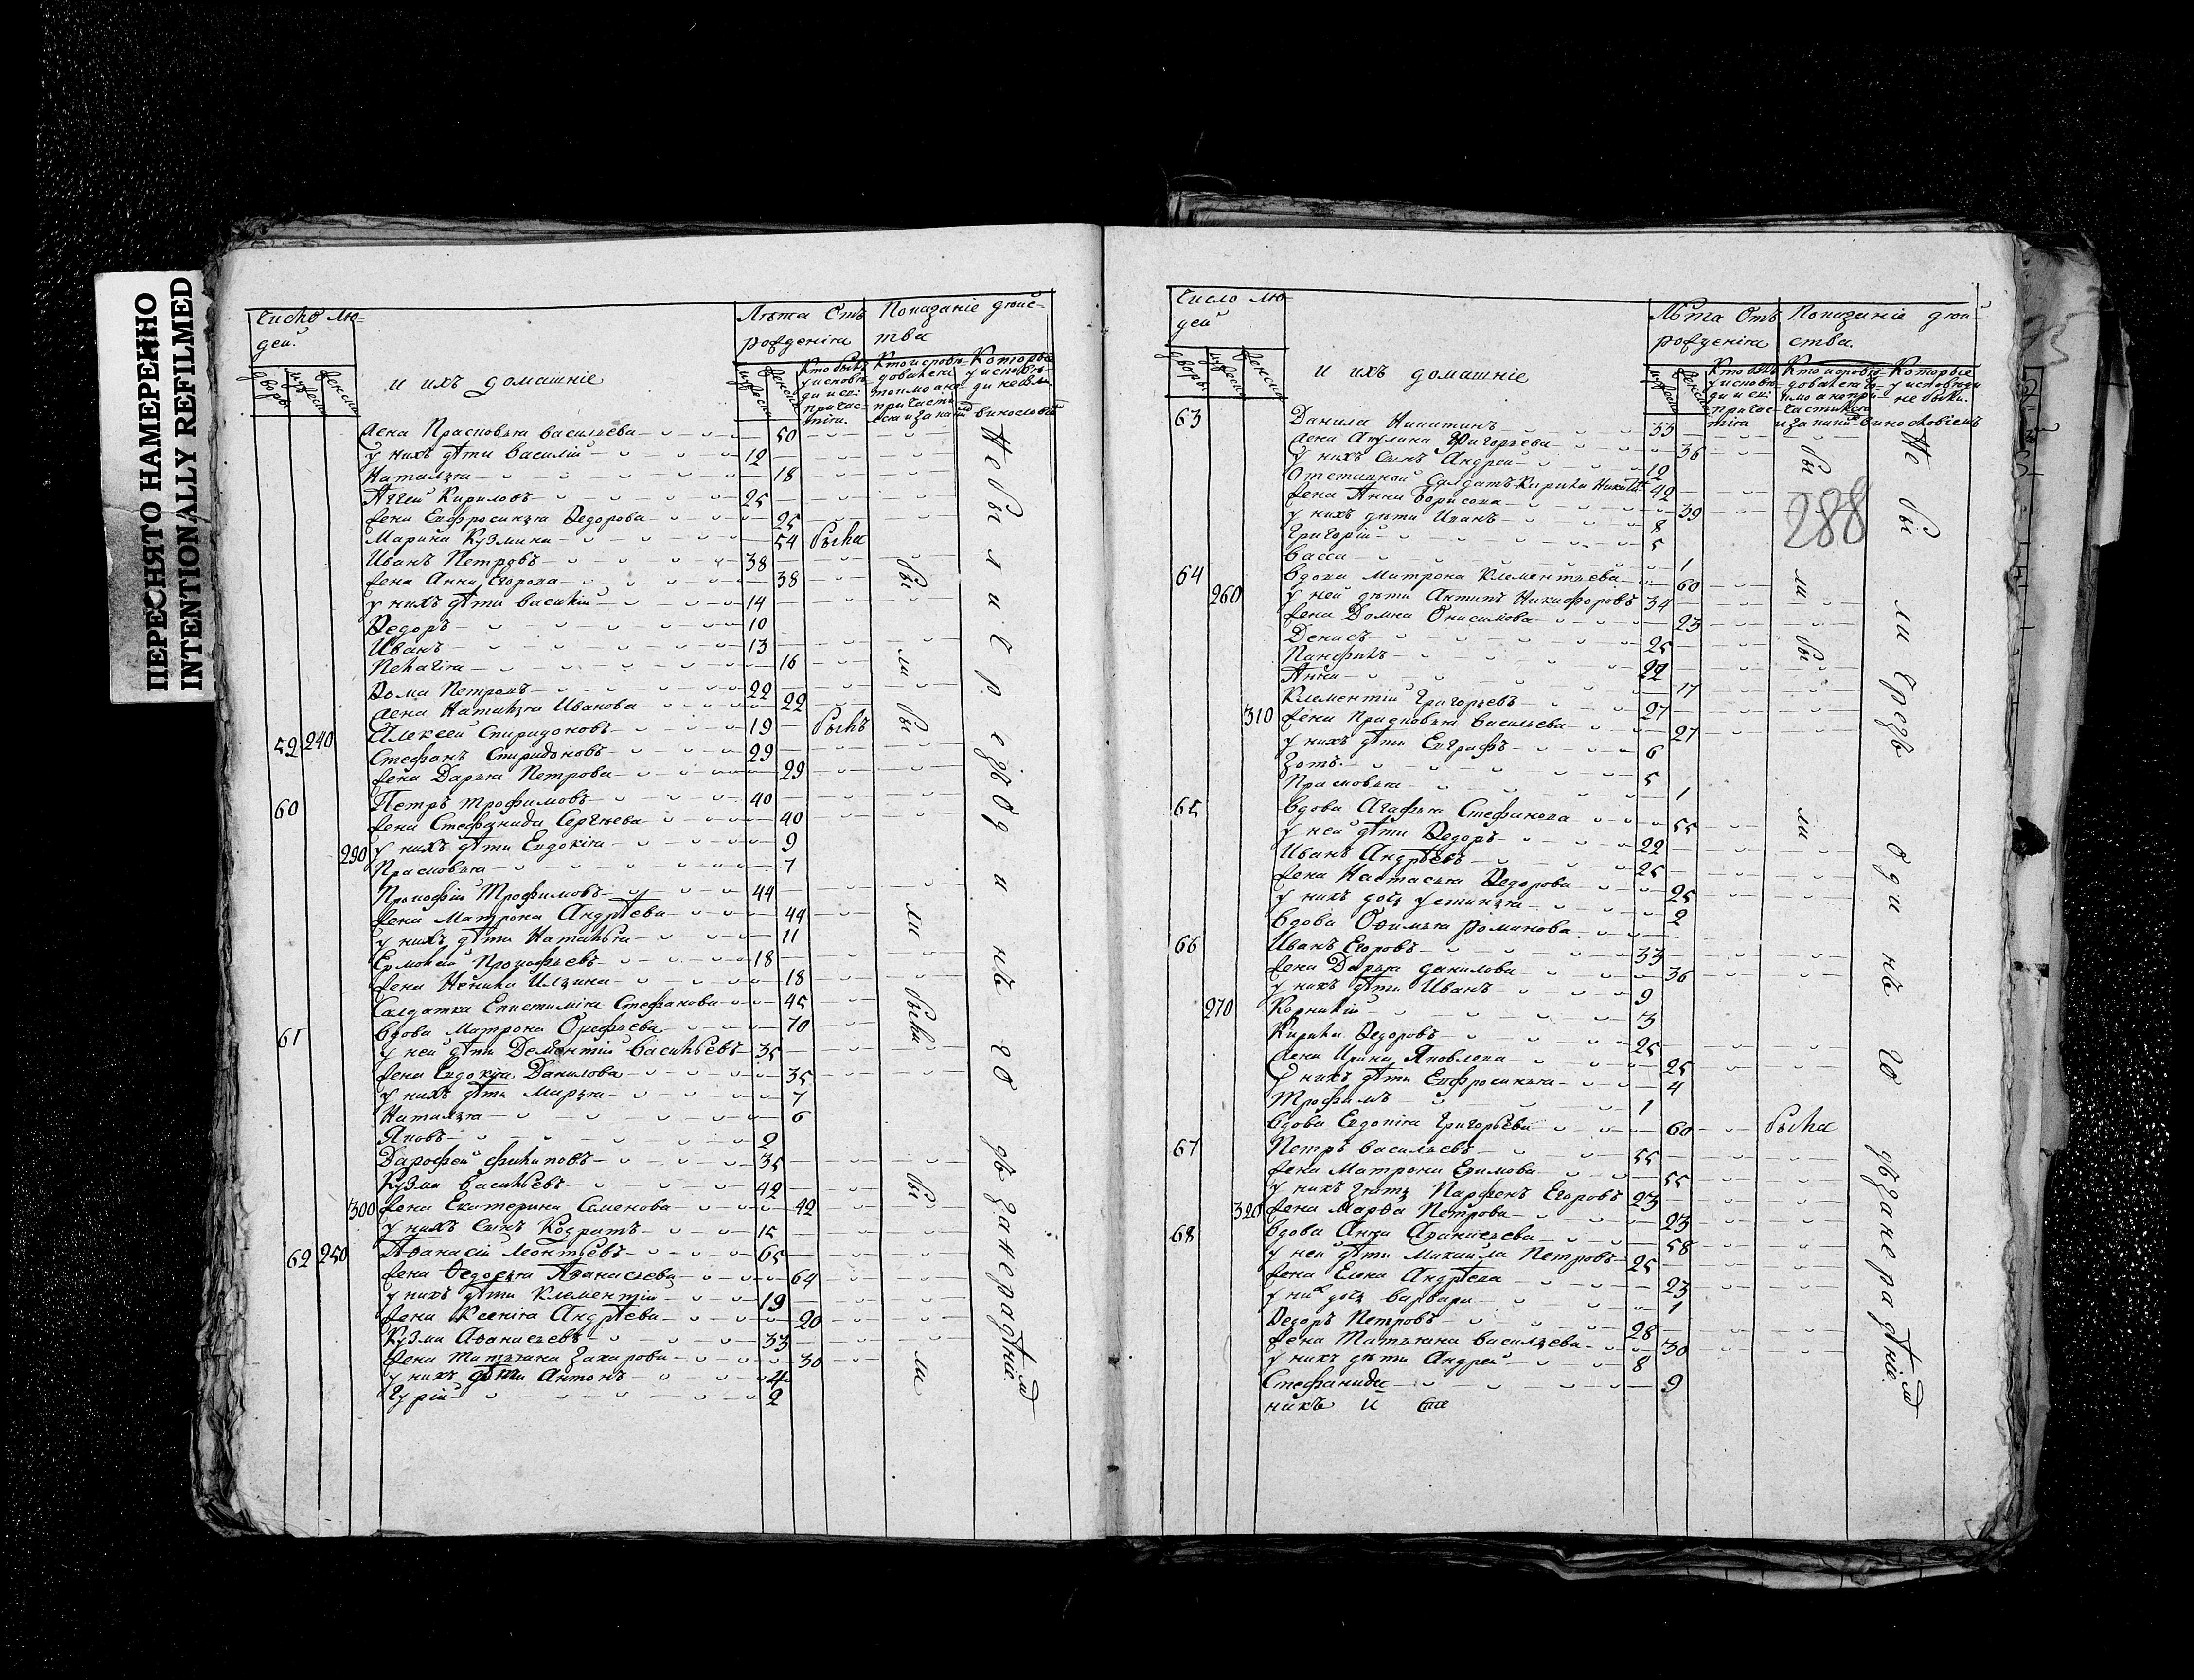 ПЕРЕСНЯТО НАМЕРЕННО
INTENTIONALLY REFILMED
Число лю-
дей.
дворы
мужеска
женска
и ихъ домашніе
Лѣта Отъ
рожденія
мужеска
женска
Показаніе дѣйс-
тва
Кто былъ
у исповѣ-
ди и св:
причас-
тія.
Кто исповѣ-
дова
Которые
у исповѣ-
ди не были
жена Прасковья Васильева 50
у нихъ дѣти Василій 12
Наталья 18
Аггей Кириловъ 25
жена Евфросинья Ѳедорова 25
Марина Кузмина 54 была
Иванъ Петровъ 38
жена Анна Егорова 38
у нихъ дѣти Василій 14
Ѳедоръ 10
Иванъ 13
Пелагія 16
Ѳома Петровъ 22
жена Наталья Иванова 22
59 240 Алексей Спиридоновъ 19 былъ
Стефанъ Спиридоновъ 29
жена Дарья Петрова 29
60 Петръ Трофимовъ 40
жена Стефанида Сергѣева 40
290 у нихъ дѣти Евдокія 9
Прасковья 7
Прокофій Трофимовъ 44
жена Матрона Андрѣева 44
у нихъ дѣти Наталья 11
Ермолай Прокофьевъ 18
жена Ненила Ильина 18
Салдатка Епистимія Стефанова 45
61 Вдова Матрона 70
у ней дѣти Дементій Васильевъ 35
жена Евдокія Данилова 35
у нихъ дѣти Марья 7
Наталья 6
Яковъ 2
Дарофей Филиповъ 35
Кузма Васильевъ 42
300 жена Екатерина Семенова 42
у нихъ Сынъ Кодратъ 15
62 250 Аѳанасій Леонтьевъ 65
жена Ѳедосья Аѳанасьева 64
у нихъ дѣти Клементій 19
жена Ксенія Андрѣева 20
Кузма Аѳанасьевъ 33
жена Татьяна Захарова 30
у нихъ дѣти Антонъ 4
Гурій 2
бы
ли
бы
ли
были
бы
ли
Не были чрез ъ
Число лю-
дей
дворы
мужеска
женска
и ихъ домашніе
Лѣта Отъ
рожденія
мужеска
женска
Показаніе дѣй-
ства.
Кто былъ
у исповѣ-
ди и св:
причас-
тія
Которые
у исповѣди
не были.
63 Данила Никитинъ 33
жена Акулина Григорьева 36
у нихъ Сынъ Андрей 12
Отставной Салдатъ Кирила Никит 42
жена Анна Борисова 39
у нихъ дѣти Иванъ 8
Григорій 5
Васса 1
64 Вдова Матрона Клементьева 60
260 у ней дѣти Антипъ Никифоровъ 34
жена Домна Онисимова 23
Денисъ 25
Панфилъ 22
Анна 17
Клементій Григорьевъ 27
310 жена Прасковья Васильева 27
у нихъ дѣти Евграфъ 6
Зотъ 5
Прасковья 1
65 Вдова Агафья Стефанова 55
у ней дѣти Ѳедоръ 22
Иванъ Андрѣевъ 25
жена Настасья Ѳедорова 25
у нихъ дочь Устинья 2
Вдова Романова
66 Иванъ Егоровъ 33
жена Дарья Данилова 36
у нихъ дѣти Иванъ 9
270 Корнилій 3
Кирила Ѳедоровъ 25
жена Ирина Яковлева 25
у нихъ дѣти Евфросинья 4
Трофимъ 1
Вдова Евдокія Григорьева 60 была
67 Петръ Васильевъ 55
жена Матрона Ефимова 55
у нихъ зять Парфенъ Егоровъ 23
320 жена Марѳа Петрова 23
68 Вдова Анна Аѳанасьева 58
у ней дѣти Михаила Петровъ 25
жена Елена Андрѣева 23
у них дочь Варвара 1
Ѳедоръ Петровъ 28
жена Татьяна Васильева 30
у нихъ дѣти Андрей 8
Стефанида 9
288
бы
ли
бы
ли
Не бы ли чрезъ